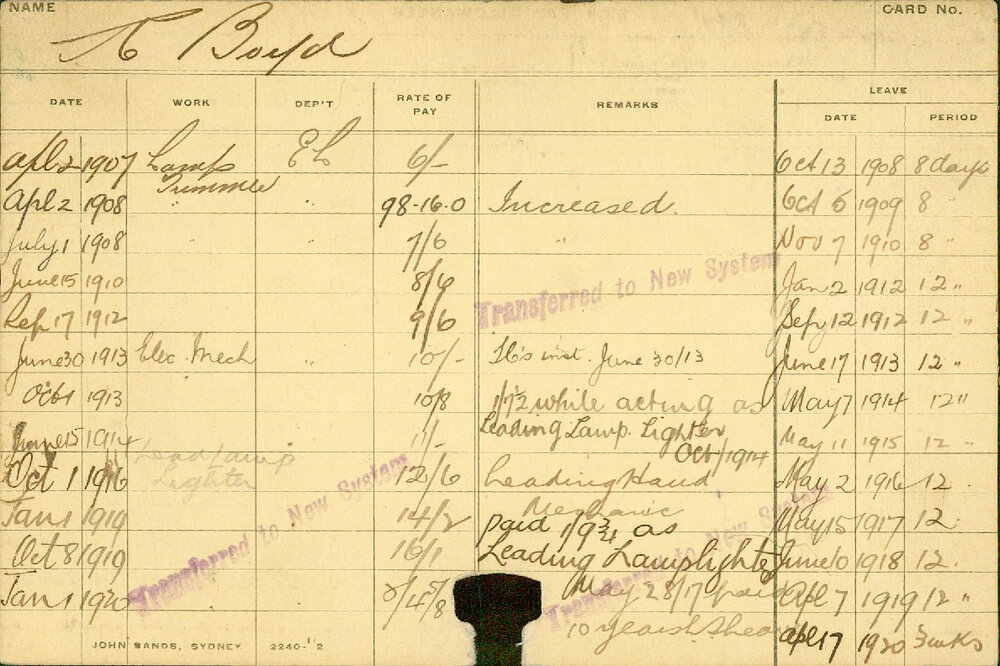 NAME CARD No.
Boyd
DATE WORK DEP'T RATE OF PAY REMARKS LEAVE
DATE PERIOD
Apl 2 1907 Lamp EL 6/- Oct 13 1908 8 days
Trimmer
Apl 2 1908 " " 98-16-0 Increased. Oct 5 1909 8 "
July 1 1908 " " 7/6 " Nov 7 1910 8 "
June 15 1910 8/6 Jan 2 1912 12 "
Transferred to New System
Sep 17 1912 9/6 Sep 12 1912 12 "
June 30 1913 Elec. Mech " 10/- June 30/13 June 17 1913 12 "
Oct 1 1913 10/8 while acting as May 7 1914 12 "
Leading Lamp Lighter
June 15 1914 Oct/1914 May 11 1915 12 "
Lead Lamp
Oct 1 1916 Lighter 12/6 Leading Hand May 2 1916 12 "
Mechanic
Jan 1 1919 14/2 paid 1/9¾ as May 15 1917 12 "
Oct 8 1919 16/1 Leading Lamplighter June 10 1918 12 "
Transferred to New System
Transferred to New System
Jan 1 1920 May 28/17 paid Apl 7 1919 12 "
10 years Apl 17 1920 3 wks
JOHN SANDS, SYDNEY 2240-½